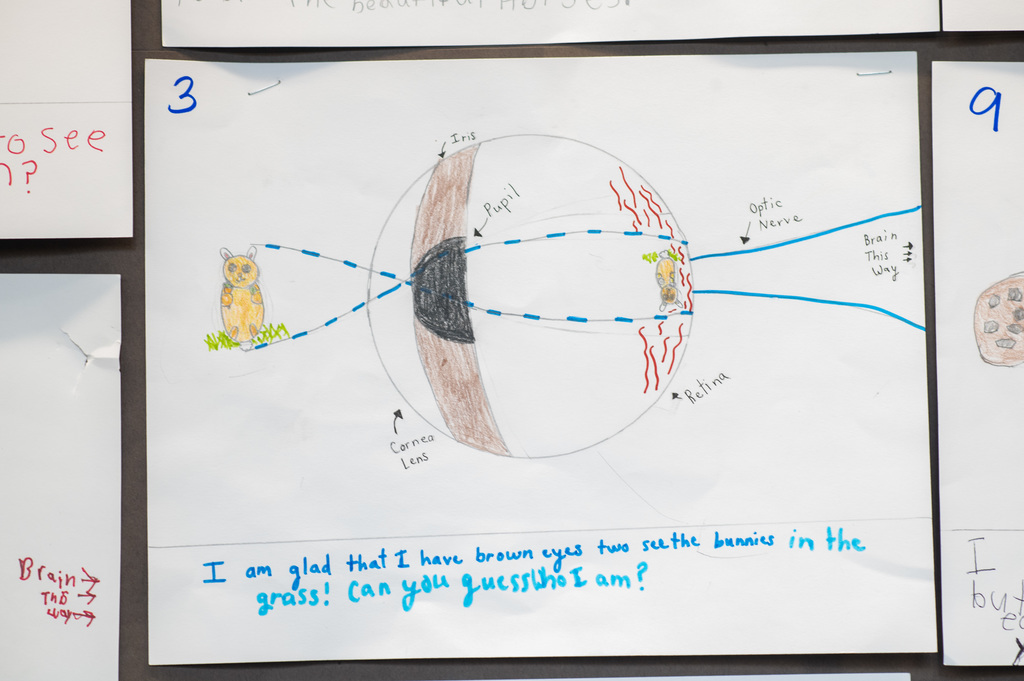 The beautiful Horses.
3
to see
?
9
Iris
Pupil
Optic
Nerve
Brain
This
Way
Retina
Cornea
Lens
I am glad that I have brown eyes two see the bunnies in the
grass! Can you guess Who I am?
Brain
This
way
I
but